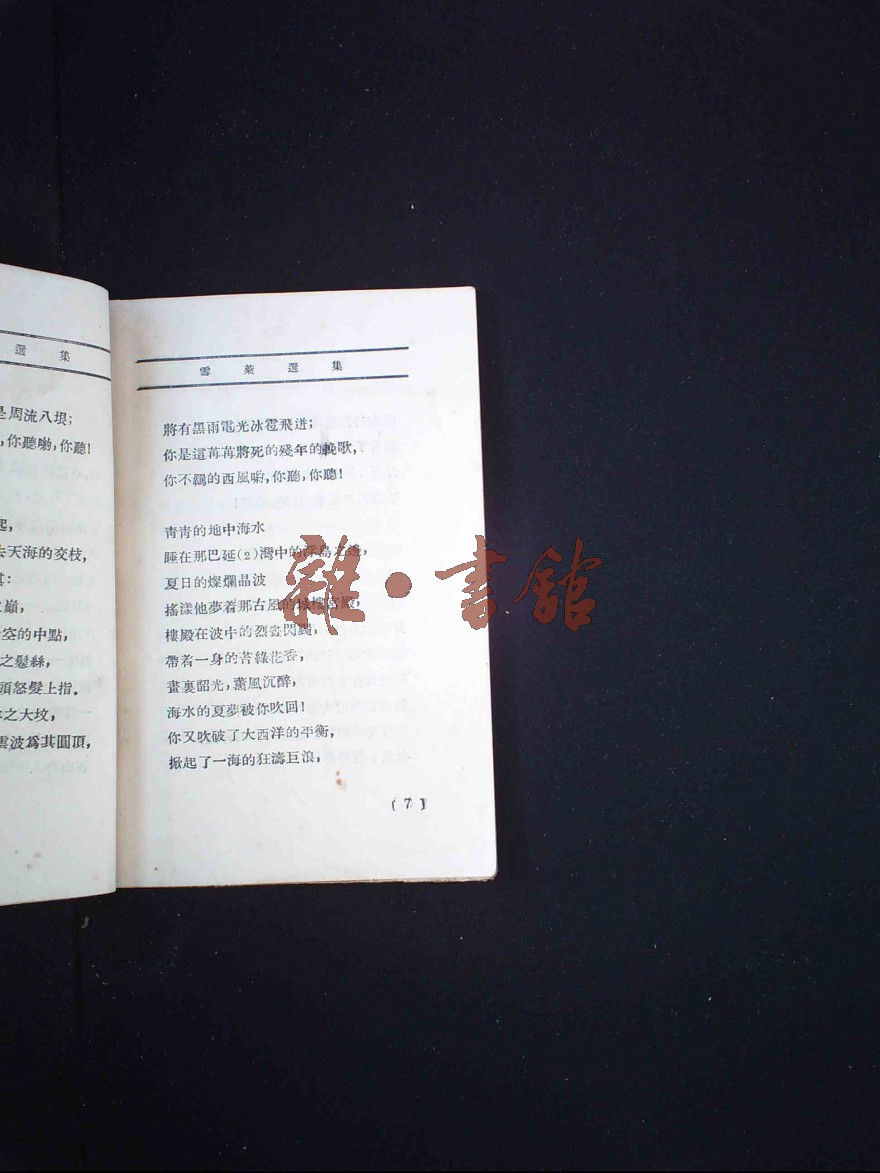 選 集
是周流八垠;
,你聽喲,你聽!
起,
去天海的交枝,
巔,
空的中點,
之鬈絲,
頭怒髮上指.
之大坟,
雲波爲其圓頂,
雪 萊 選 集
將有黑雨電光冰雹飛迸;
你是這苒苒將死的殘年的挽歌,
你不羈的西風喲,你聽,你聽!
靑靑的地中海水
睡在那巴延(2)灣中的浮島之邊,
夏日的燦爛晶波
搖漾他夢着那古風的城樓宮殿,
樓殿在波中的烈晝閃躅,
帶着一身的苔綠花香,
晝裏韶光,薰風沉醉,
海水的夏夢被你吹回!
你又吹破了大西洋的平衡,
掀起了一海的狂濤巨浪,
〔7〕
雜·書館